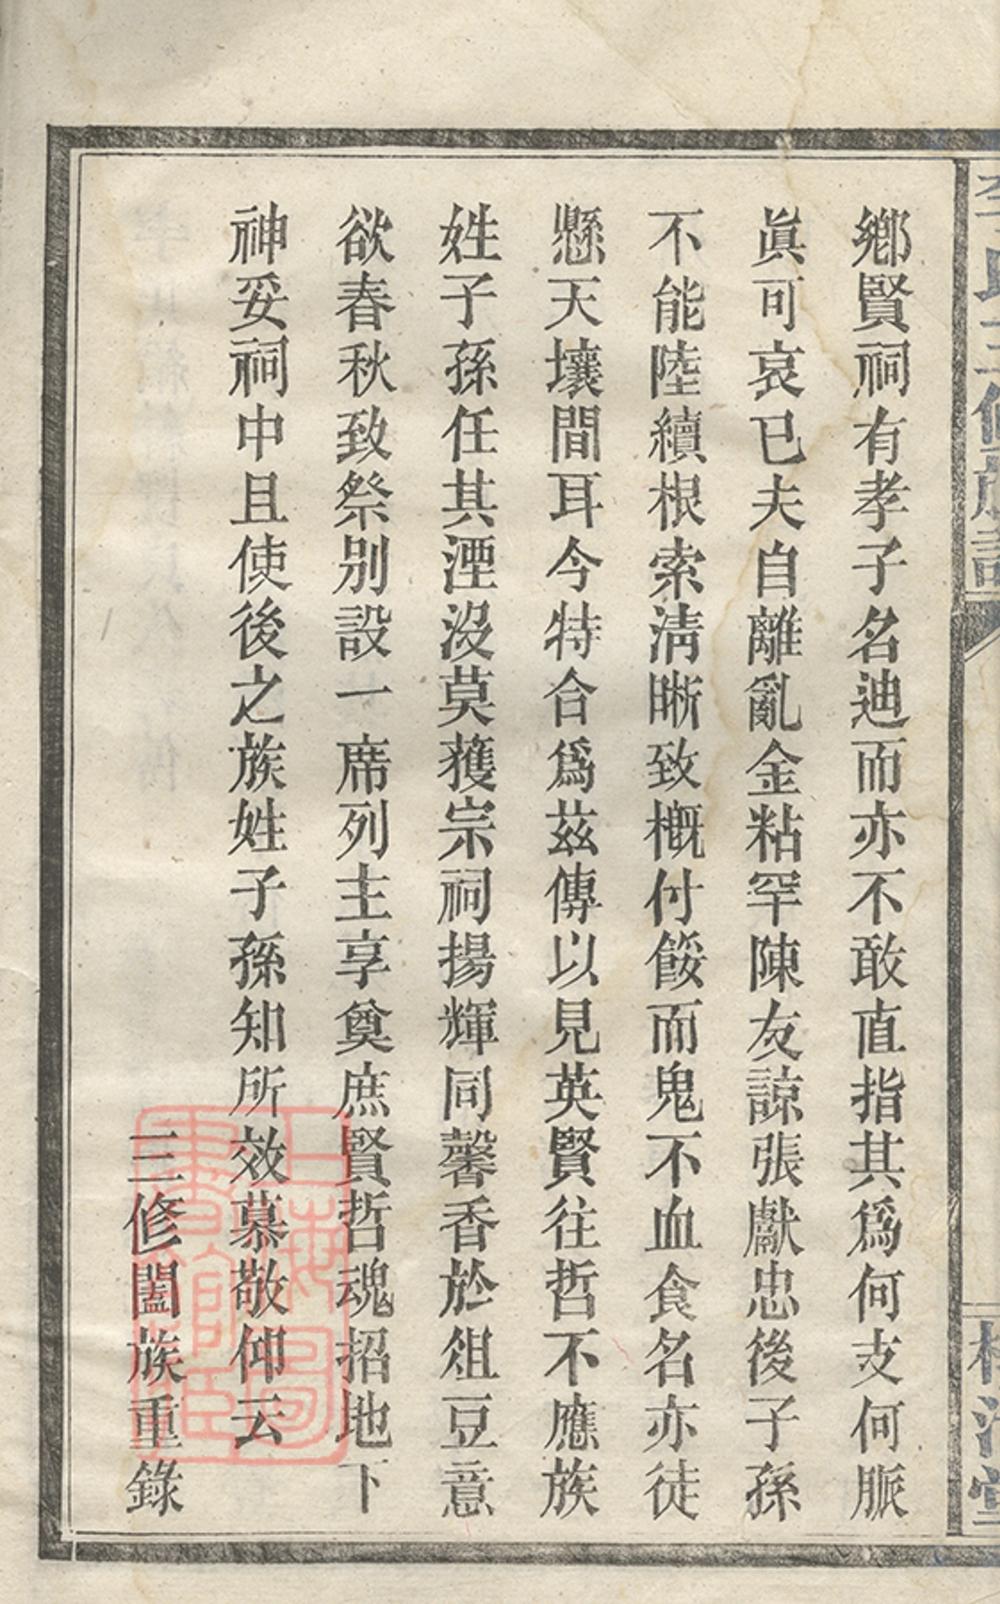 李氏三修族譜
鄉賢祠有孝子名迪而亦不敢直指其爲何支何脈
眞可哀已夫自離亂金粘罕陳友諒張獻忠後子孫
不能陸續根索淸晰致槪付餒而鬼不血食名亦徒
懸天壤間耳今特合爲茲傳以見英賢往哲不應族
姓子孫任其湮沒莫獲宗祠揚輝同馨香於俎豆意
欲春秋致祭別設一席列主享奠庶賢哲魂招地下
神妥祠中且使後之族姓子孫知所效慕敬仰云
三修闔族重錄
上海圖書館藏